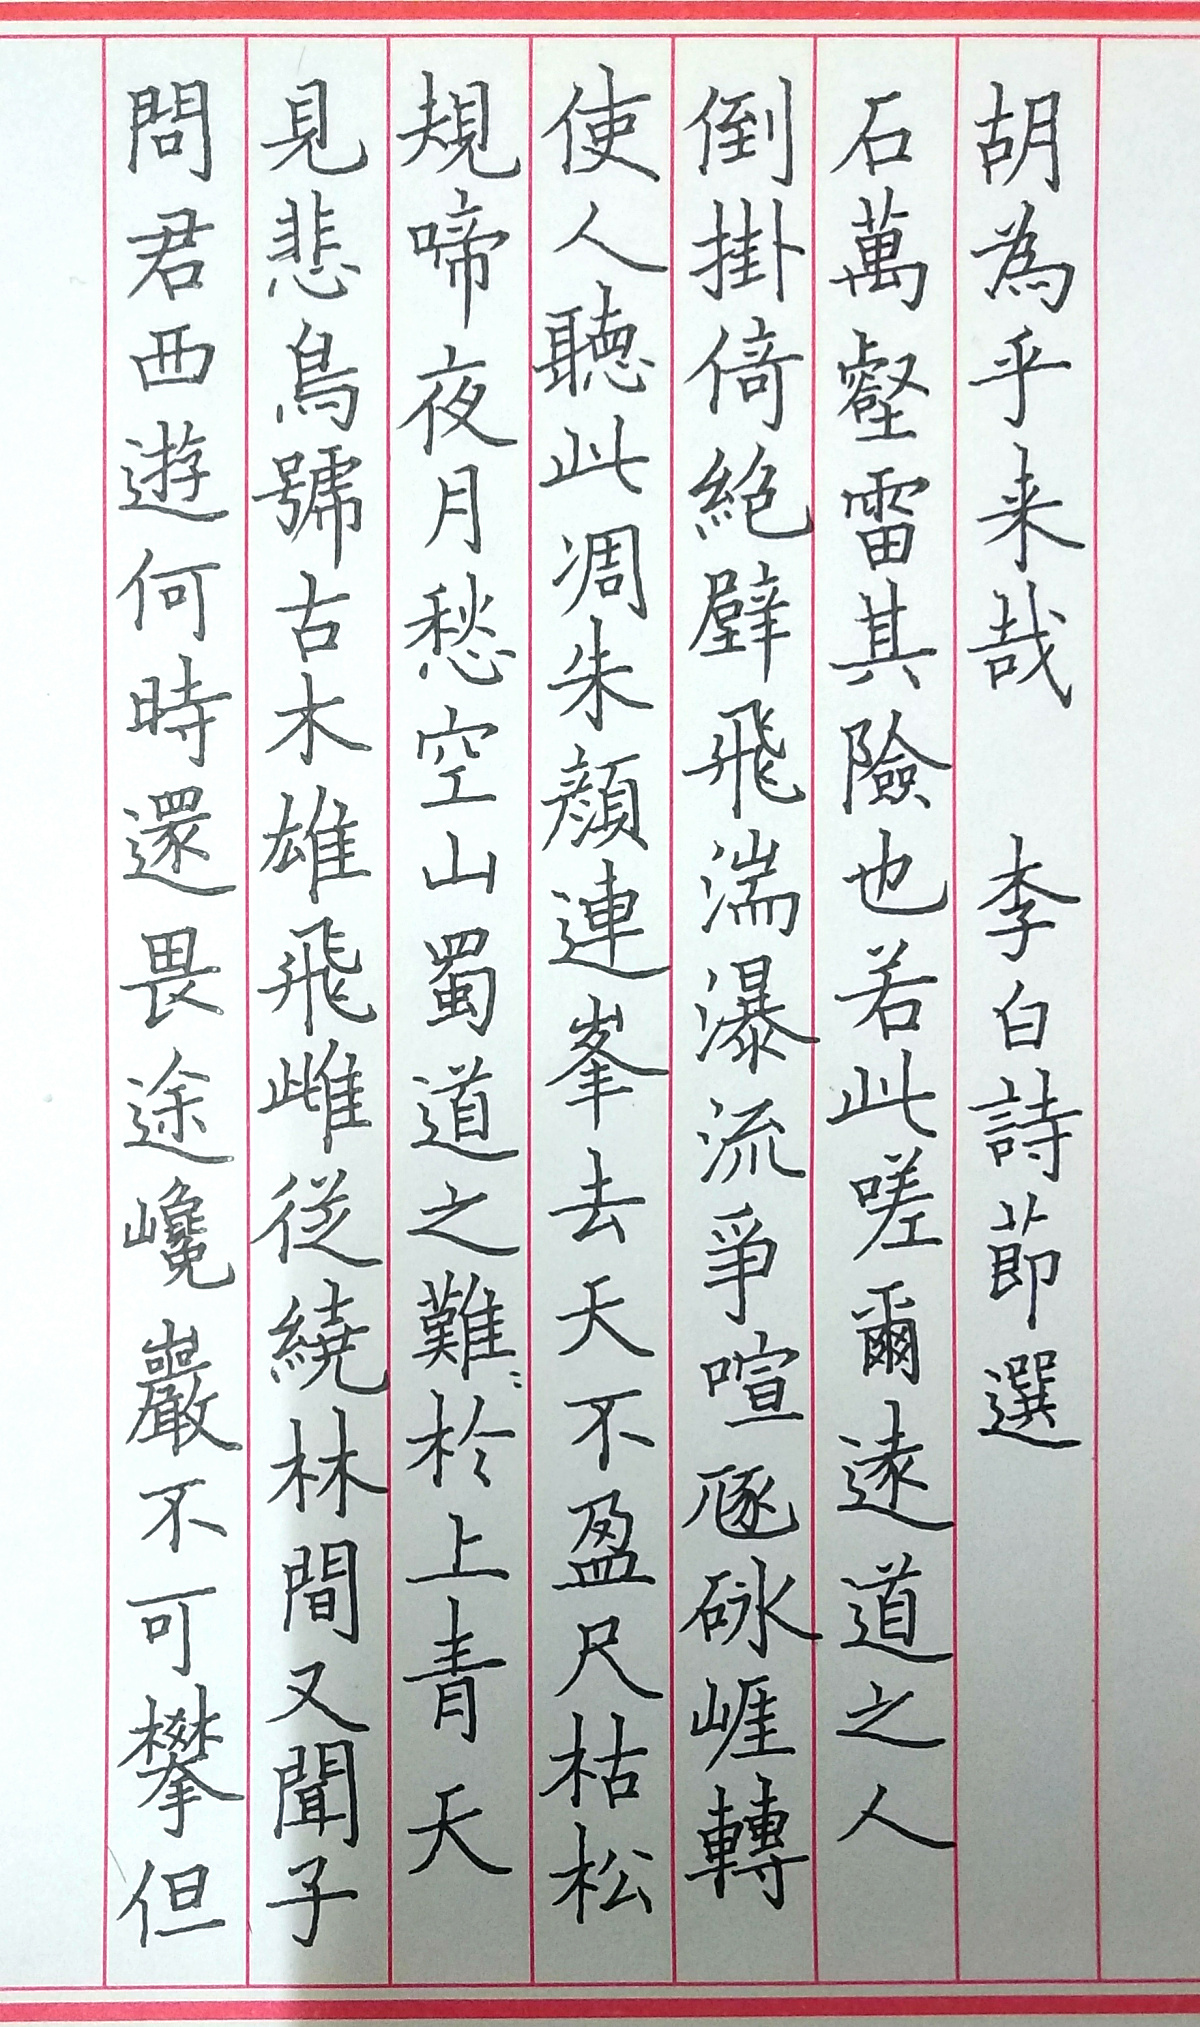 問君西遊何時還畏途巉巖不可攀但
見悲鳥號古木雄飛雌從繞林間又聞子
規啼夜月愁空山蜀道之難〻於上青天
使人聽此凋朱顏連峯去天不盈尺枯松
倒掛倚絕壁飛湍瀑流爭喧豗砯崕轉
石萬壑雷其險也若此嗟爾遠道之人
胡為乎来哉 李白詩節選